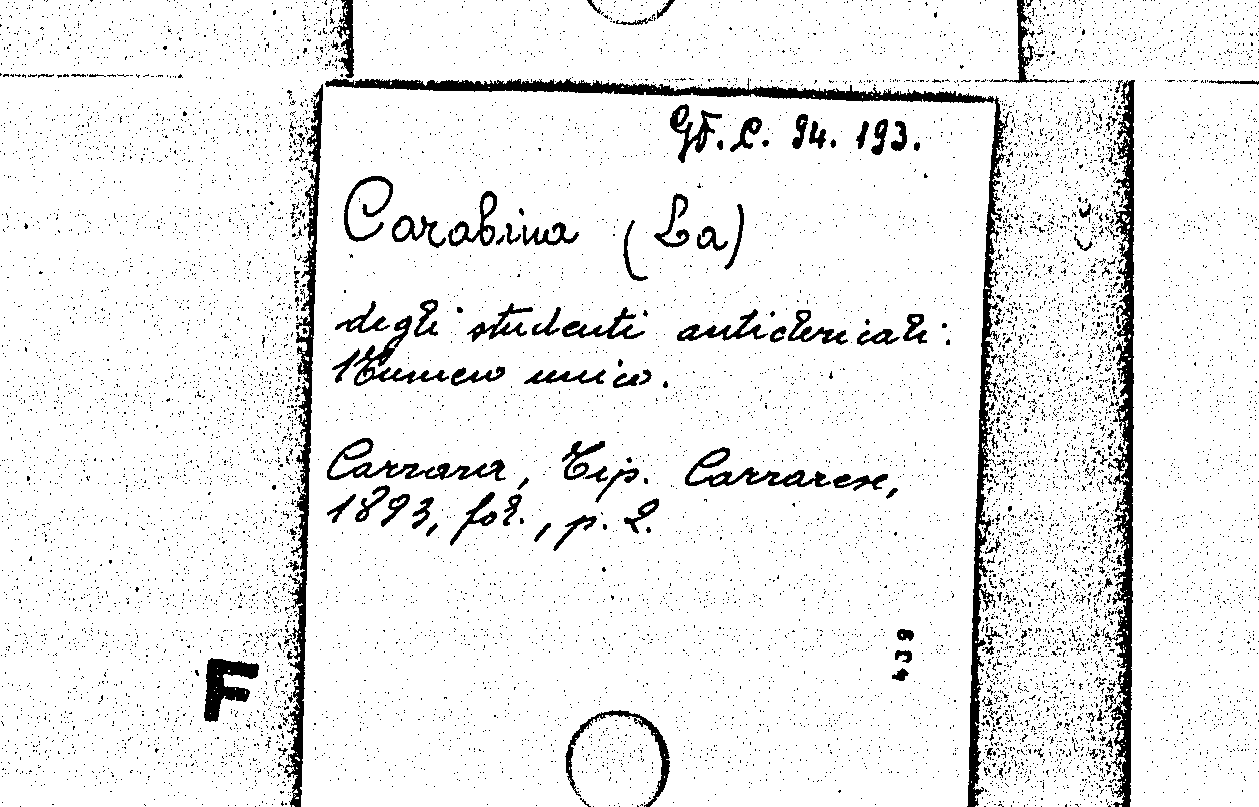 GF. C. 94. 193.
Carabina (La)
degli studenti anticlericali.
Numero unico.
Carrara, Tip. Carrarese,
1893, fol., p. 2.
439
F